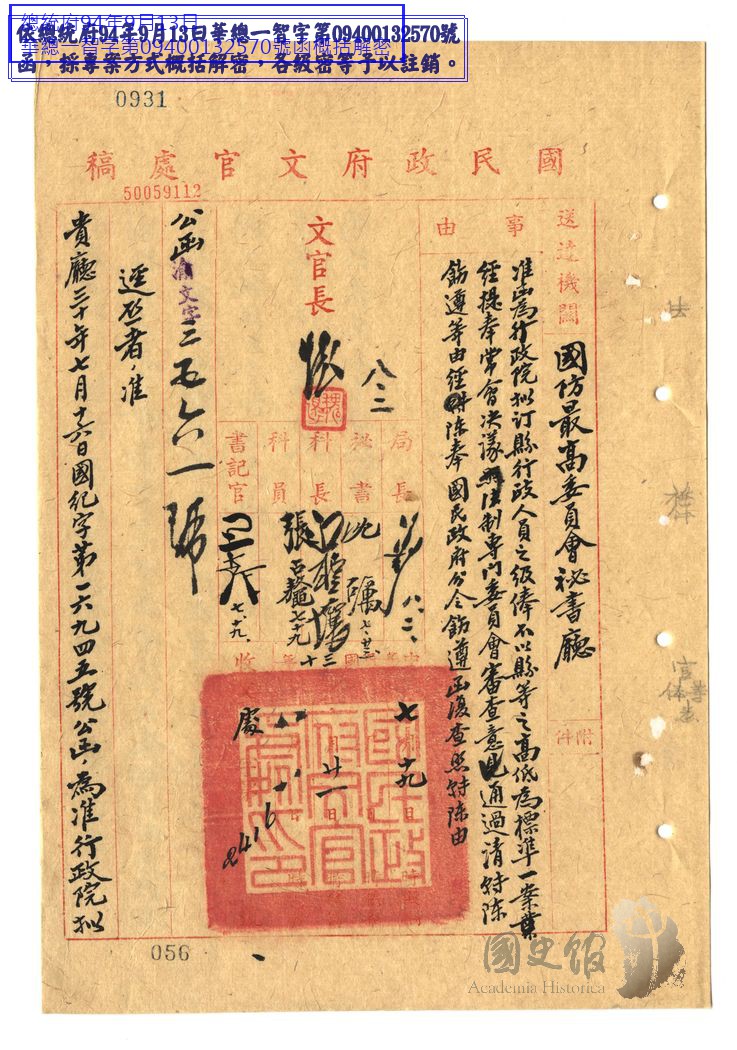 總統府94年9月13日
華總一智字第09400132570號函概括解密
依總統府94年9月13日華總一智字第09400132570號
函，採專案方式概括解密，各級密等予以註銷。
0931
國民政府文官處稿
50059112
送達機關
國防最高委員會祕書廳
附件
事由
准函為行政院擬訂縣行政人員之級俸不以縣等之高低為標準一案業
經提奉常會決議照法制專門委員會審查意見通過請轉陳
飭遵等由經轉陳奉國民政府分令飭遵函復查照轉陳由
文官長
八、二
局長
八、二、
祕書
七、廿三
科長
科員
張
七、十九
書記官
七、十九、
收
七月十九日
月廿一日
八
處
2416
國民政府文官處印
公函
渝文字三五六一號
逕啟者，准
貴廳三十年七月十六日國紀字第一六九四五號公函，為准行政院擬
056
國史館
Academia Historica